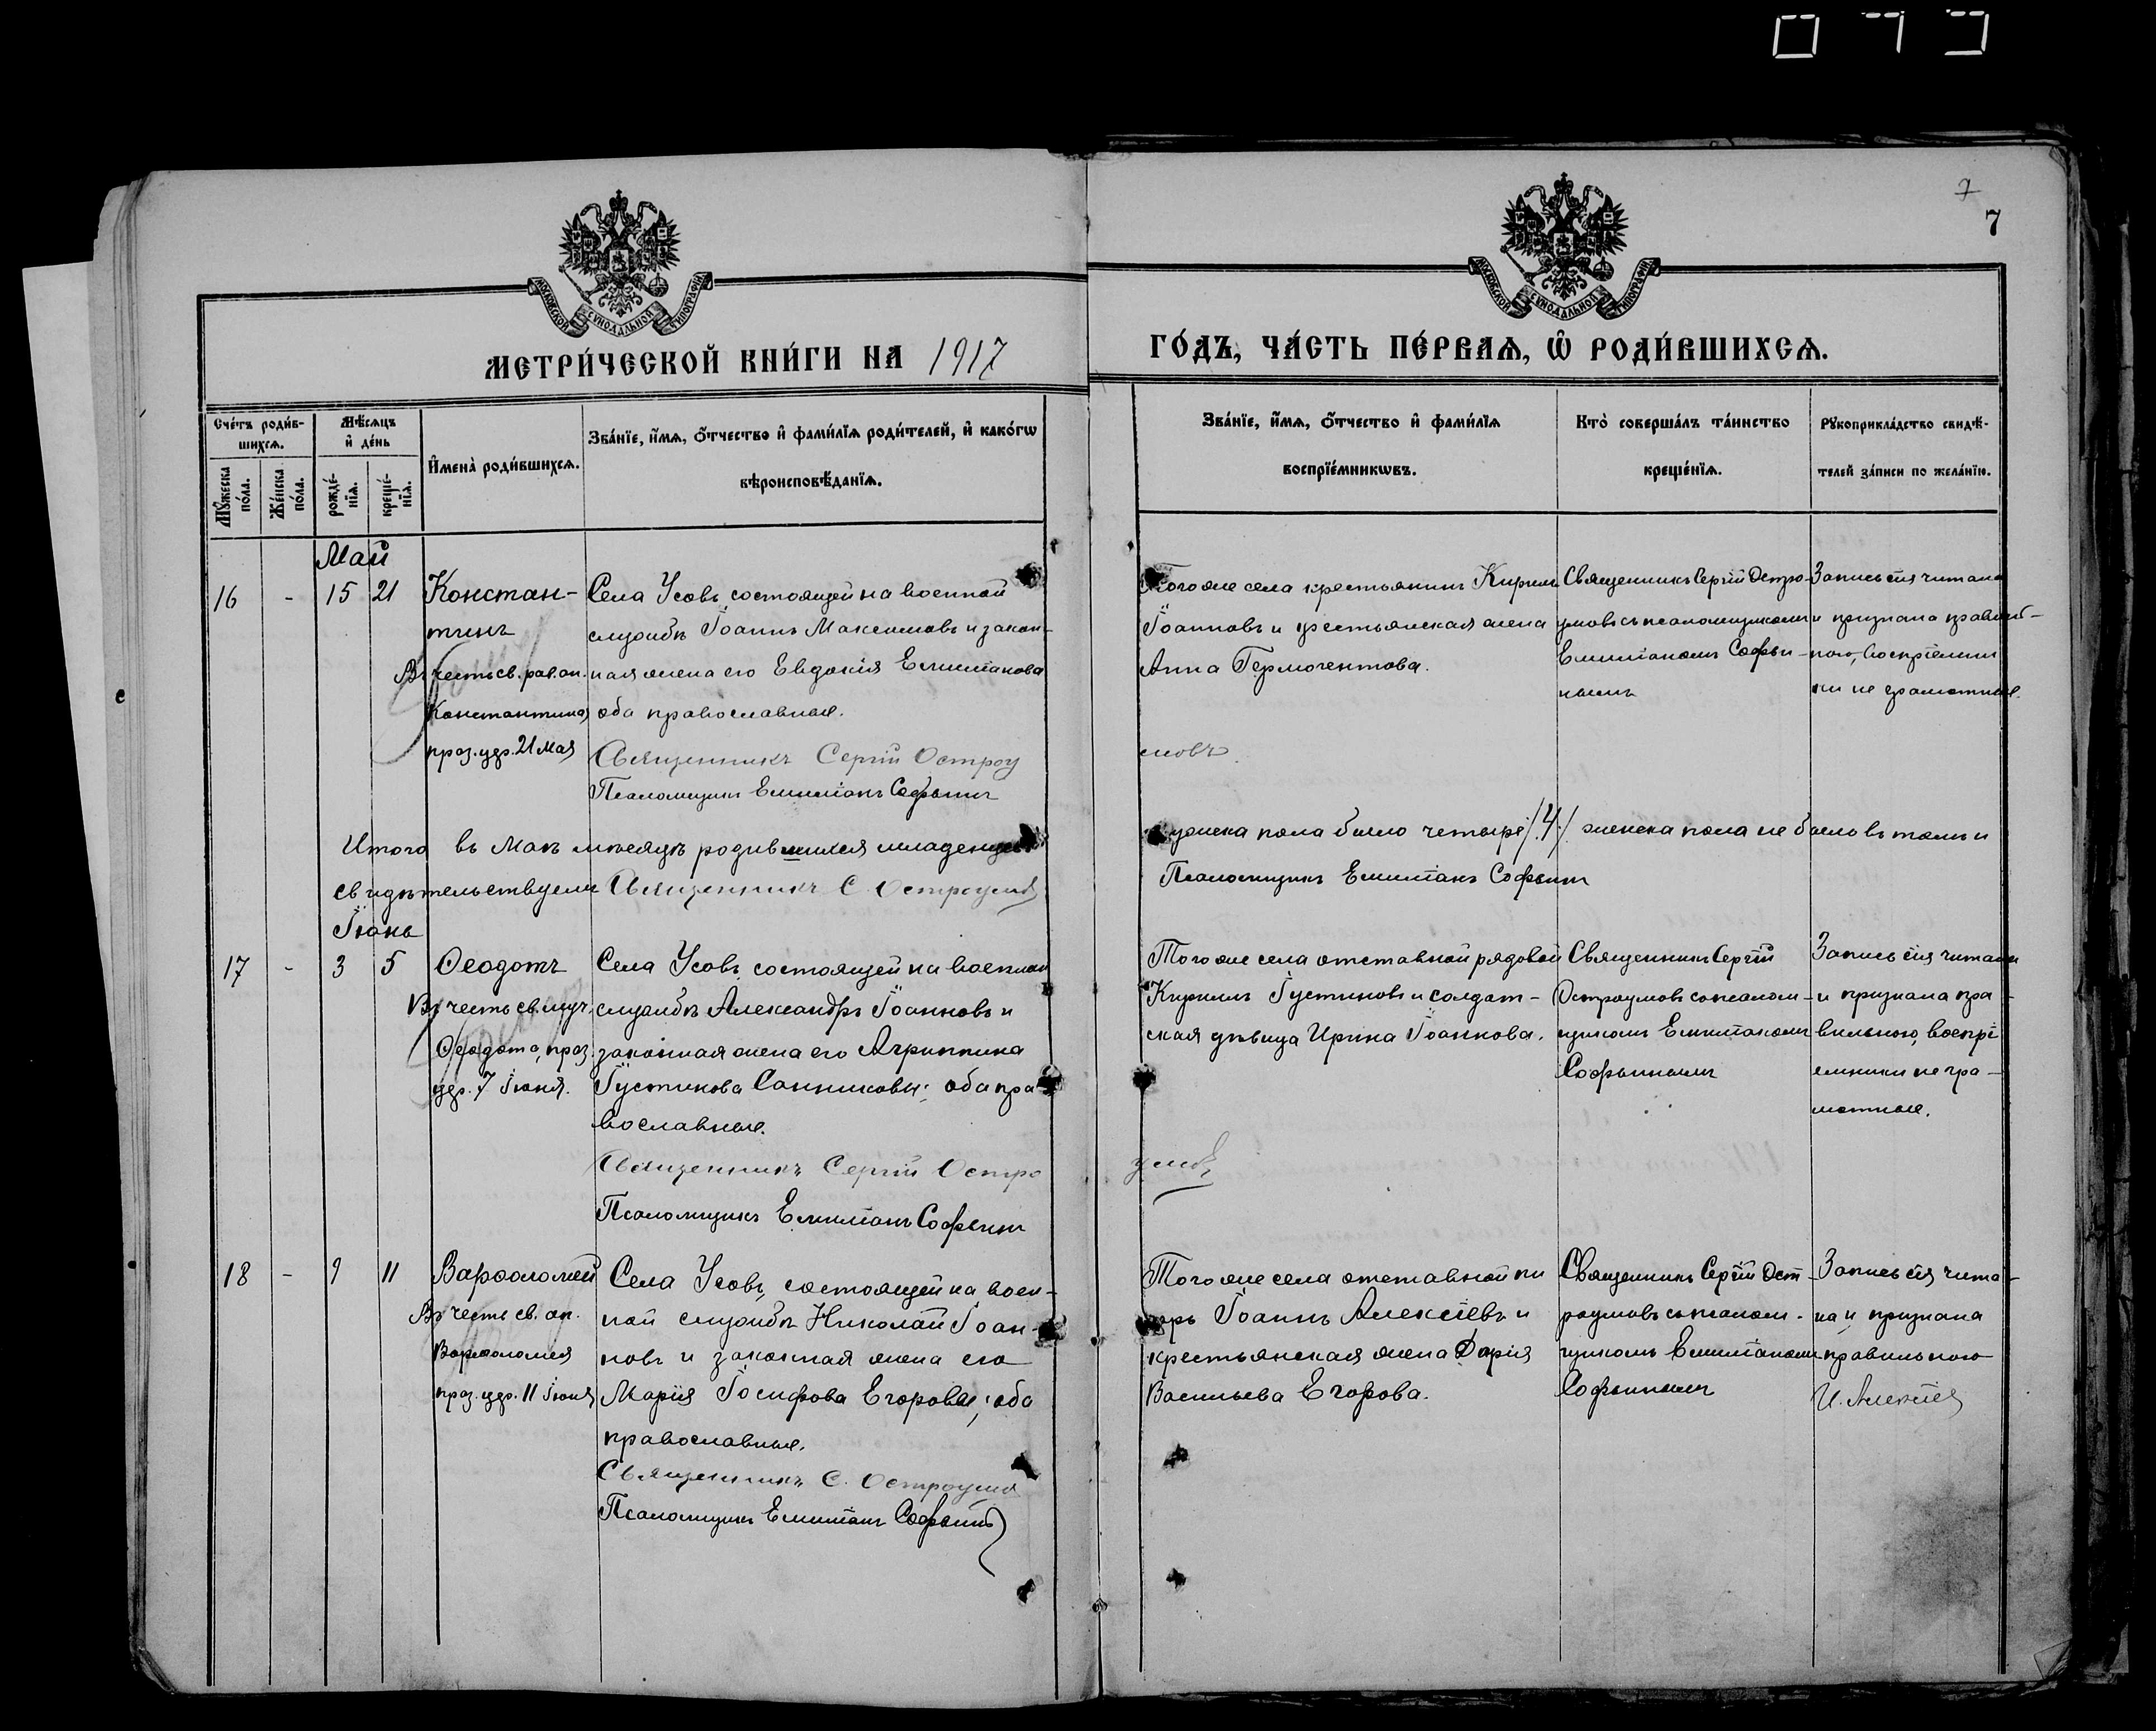 7
7
МОСКОВСКОЙ СѴНОДАЛЬНОЙ ТИПОГРАФІИ
МОСКОВСКОЙ СѴНОДАЛЬНОЙ ТИПОГРАФІИ
МЕТРИ́ЧЕСКОЙ КНИ́ГИ НА 1917
ГО́ДЪ, ЧА́СТЬ ПЕ́РВАѦ, Ѽ РОДИ́ВШИХСѦ.
Сче́тъ роди́в-
шихсѧ.
Мѣ́сѧцъ
и҆ де́нь
Мꙋ́жеска по́ла.
Же́нска по́ла.
рожде́-
нїѧ.
креще́-
нїѧ.
И҆мена̀ роди́вшихсѧ.
Зва́нїе, и҆́мѧ, ѻ҆́тчество и҆ фами́лїѧ роди́телей, и҆ како́гѡ
вѣроисповѣ́данїѧ.
Зва́нїе, и҆́мѧ, ѻ҆́тчество и҆ фами́лїѧ
воспрїе́мникѡвъ.
Кто̀ соверша́лъ та́инство
креще́нїѧ.
Рꙋкоприкла́дство свидѣ́-
телей за́писи по жела́нїю.
Май
16 - 15 21
Констан-
тинъ
Въ честь св. рав. ап.
Константина,
праз. удр. 21 мая
Села Усовъ, состоящей на военной
службѣ Іоаннъ Максимовъ и закон-
ная жена его Евдокія Емиліанова
оба православные.
Священникъ Сергій Остроу
Псаломщикъ Емиліанъ Софьинъ
Того же села крестьянинъ Кирилъ
Іоанновъ и крестьянская жена
Анна Гермогентова.
умовъ
Священникъ Сергій Остро-
умовъ съ псаломщикомъ
Емиліаномъ Софьи-
нымъ
Запись сія читана
и признана правиль-
ною, воспріемни
ки не грамотные.
Итого въ маѣ мѣсяцѣ родившихся младенцевъ
мужска пола было четыре /4/ женска пола не было въ томъ и
свидѣтельствуемъ Священникъ С. Остроумовъ
Псаломщикъ Емиліанъ Софьинъ
Іюнь
17 - 3 5
Ѳеодотъ
Въ честь св. муч.
Ѳеодота, праз.
удр. 7 Іюня.
Села Усовъ, состоящей на военной
службѣ Александръ Іоанновъ и
законная жена его Агриппина
Іустинова Санниковы; оба пра
вославные.
Священникъ Сергій Остро
Псаломщикъ Емиліанъ Софьинъ
Того же села отставной рядовой
Кириллъ Іустиновъ и солдат-
ская дѣвица Ирина Іоаннова.
умовъ
Священникъ Сергій
Остроумовъ съ псалом-
щикомъ Емиліаномъ
Софьинымъ
Запись сія читана
и признана пра-
вильною, воспрі
емники не гра-
мотные.
18 - 9 11
Варѳоломей
Въ честь св. ап.
Варѳоломея
праз. удр. 11 Іюня
Села Усовъ, состоящей на воен-
ной службѣ Николай Іоан-
новъ и законная жена его
Марія Іосифова Егоровы; оба
православные.
Священникъ С. Остроумовъ
Псаломщикъ Емиліанъ Софьинъ
Того же села отставной пи
сарь Іоаннъ Алексіевъ и
крестьянская жена Дарія
Васильева Егорова.
Священникъ Сергій Ост-
роумовъ съ псалом-
щикомъ Емиліаномъ
Софьинымъ
Запись сія чита-
на и признана
правильною
И. Алексіев